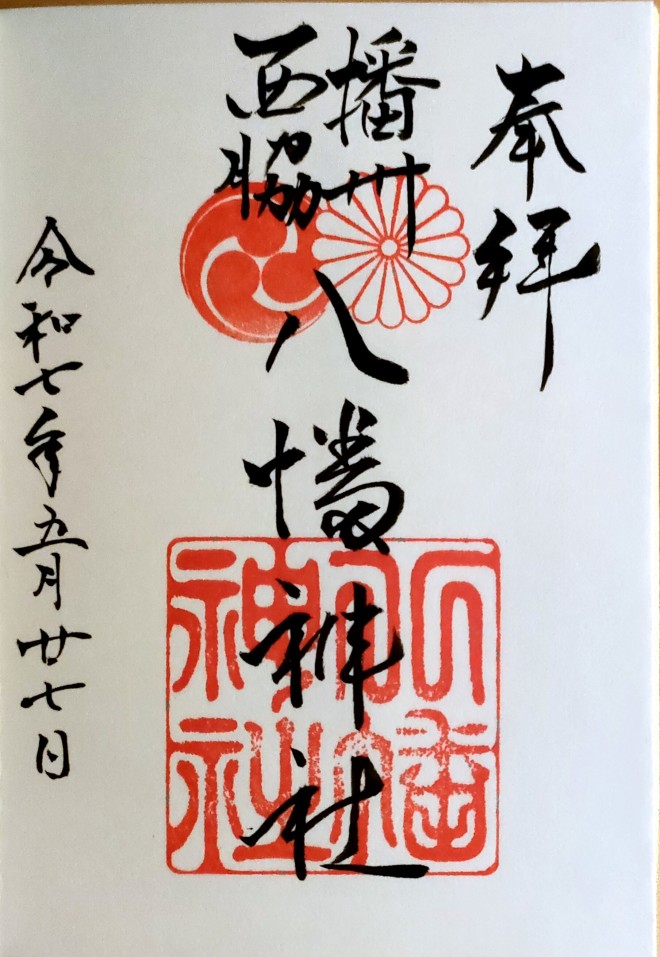 奉拝
播州
西脇
八幡神社
令和七年五月廿七日
八幡
神社